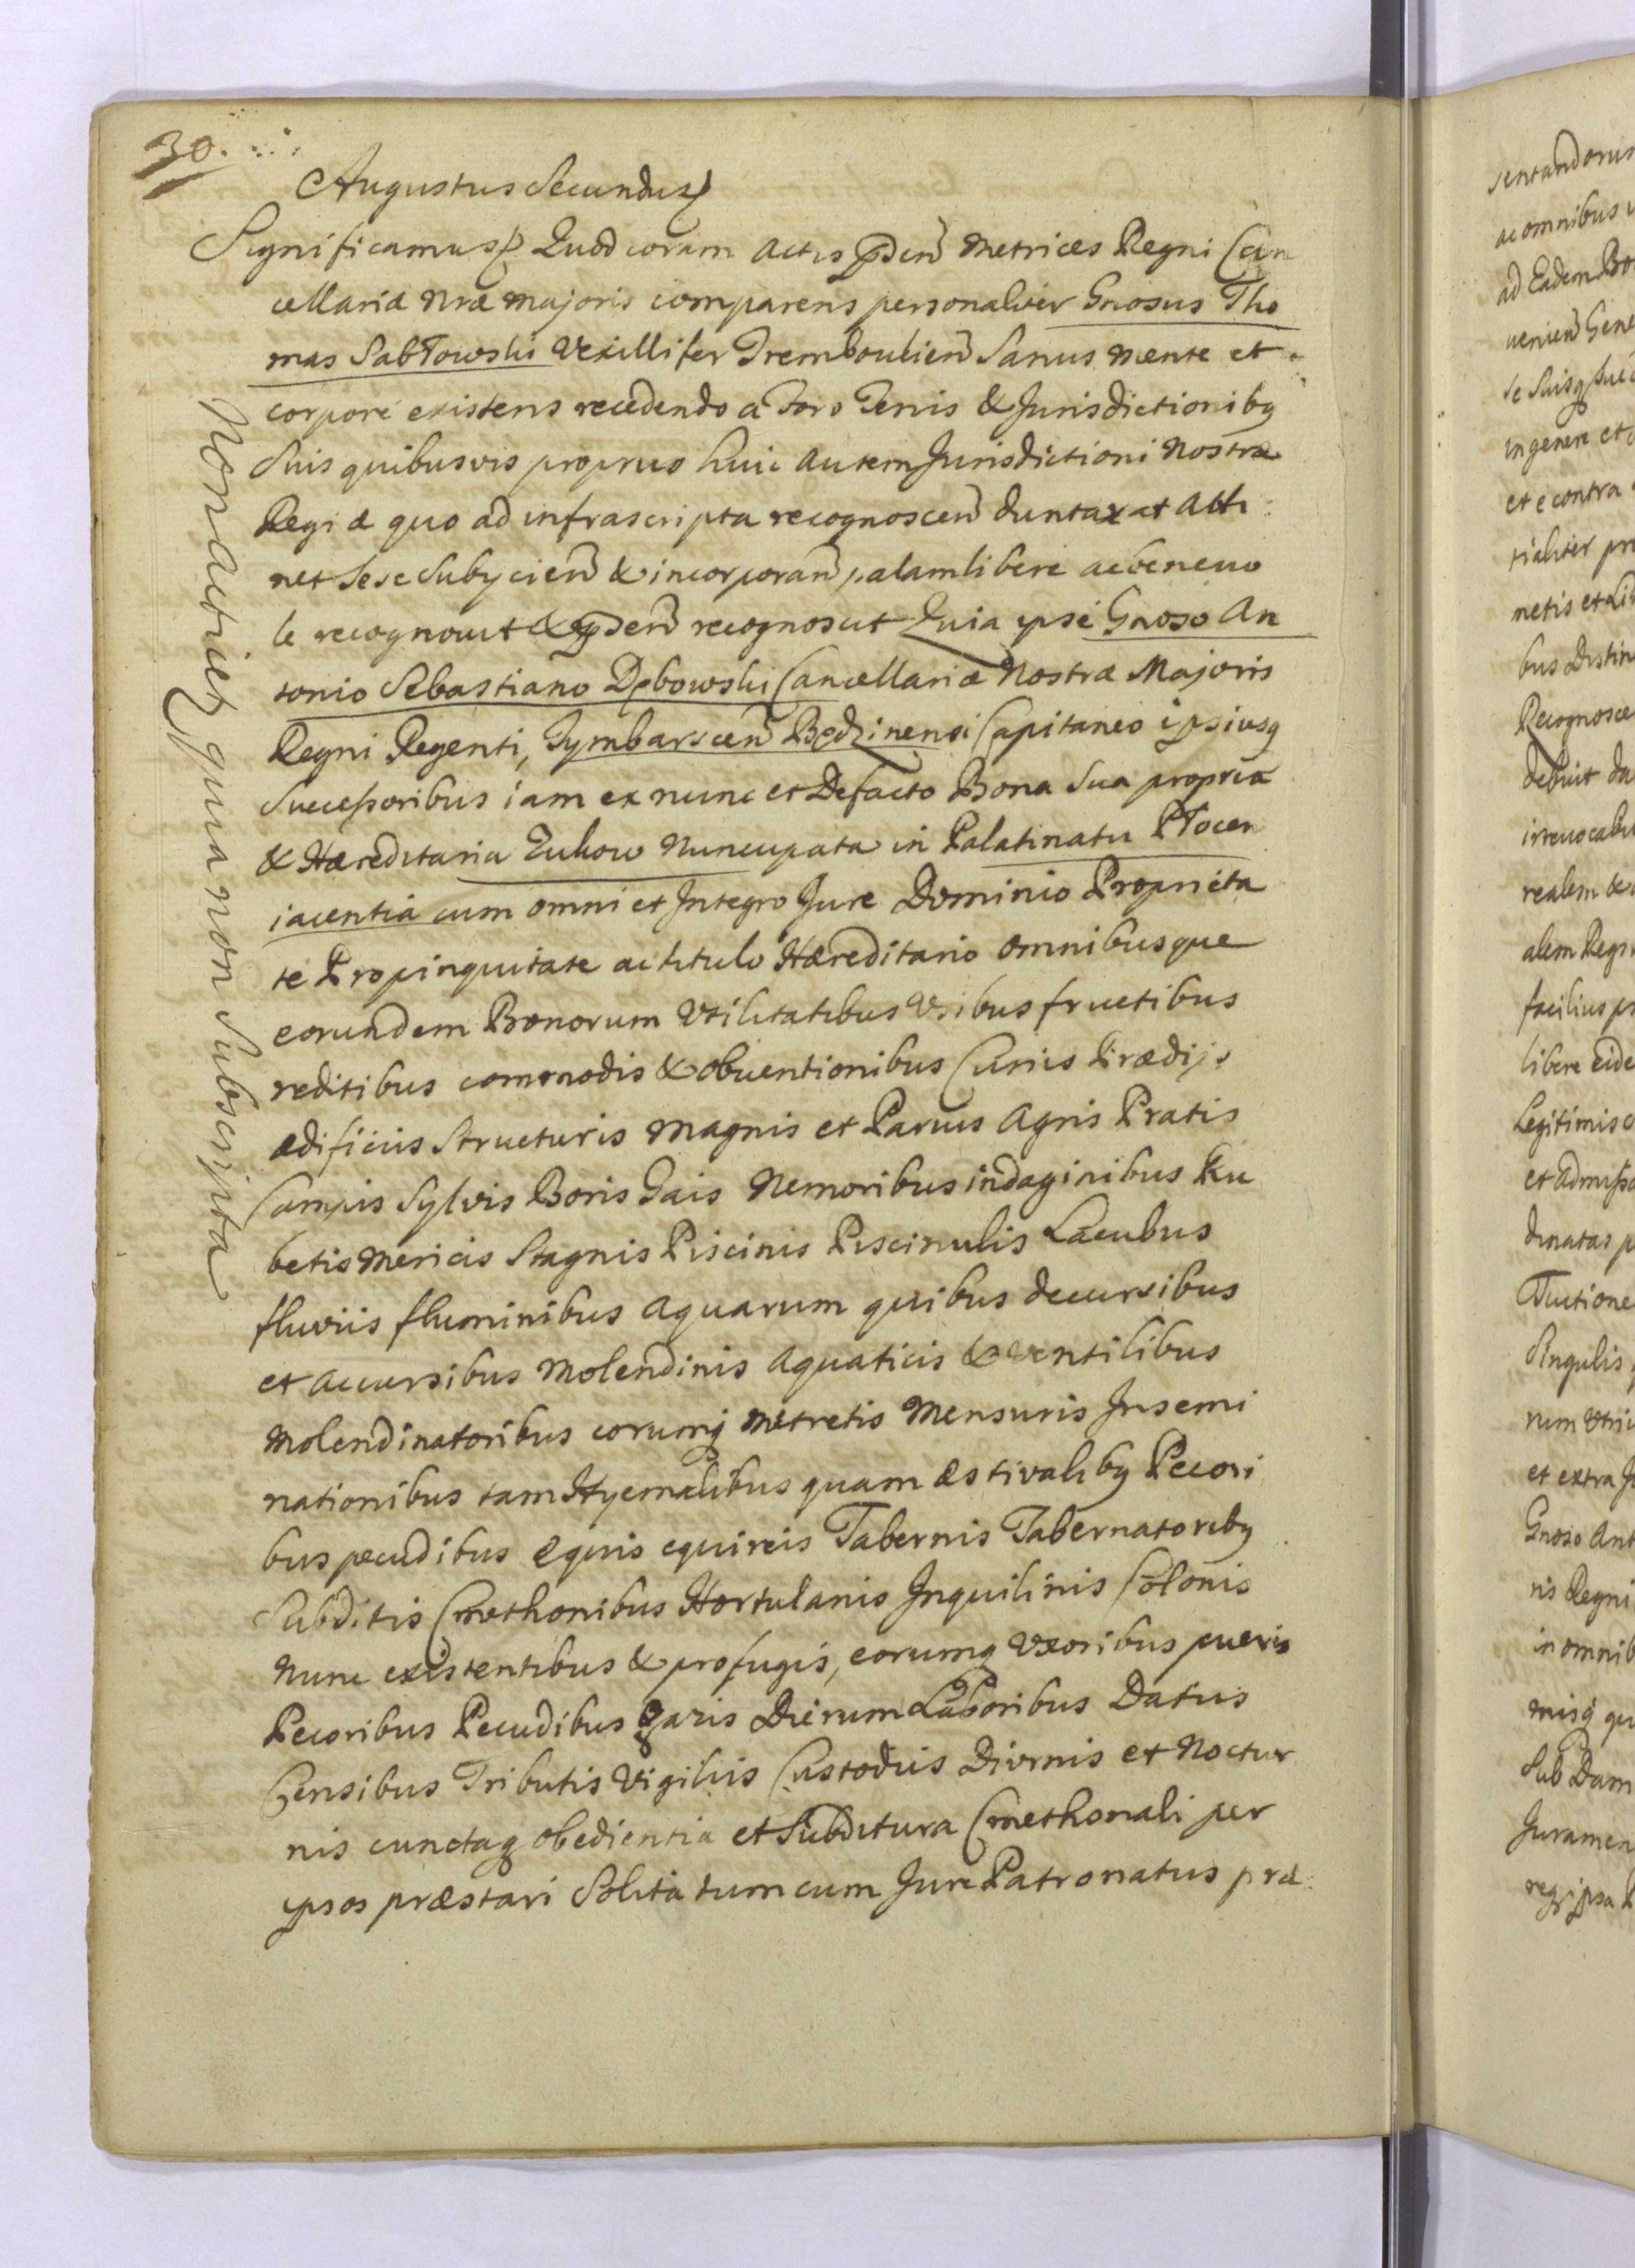 30.
Augustus Secundus
Significamus Quod coram Actis pnsen Metrices Regni Can
cellariæ Nræ Majoris comparens personaliter Gnosus Tho
mas Sabłowski Vexillifer Tremboulien Sanus mente et
corpore existens recedendo a foro Tenis & Jurisdictionibq
Suis quibusvis proprus huic Autem Jurisdictioni Nostræ
Regiæ quo ad infrascripta recognoscen duntaxat Atti
net Sese Subycien & incorporan palam libere ac benevo
le recognovit & pnsen recognoscit Quia ipse Gnoso An
tonio Sebastiano Dębowski Cancellariæ Nostræ Majoris
Regni Regenti, Tymbarscen Będzinensi Capitaneo ipsiusq
Successoribus iam ex nunc et Defacto Bona Sua propria
& Hæreditaria Zukow Nuncupata in Palatinatu Płocen
iacentia cum omni et Integro Jure Dominio Proprieta
te Propinquitate ac titulo Hæreditario Omnibusque
eorundem Bonorum Utilitatibus Usibus fructibus
reditibus commodis & obventionibus Curiis Prædijs
ædificiis Structuris Magnis et Parvis Agris Pratis
Campis Sylvis Boris Gais Nemoribus indaginibus Ru
betis Mericis Stagnis Piscinis Piscinulis Lacubus
fluviis fluminibus Aquarum quibus decursibus
et Accursibus Molendinis Aquaticis & ventilibus
Molendinatoribus eorumq Metretis Mensuris Insemi
nationibus tam Hyemalibus quam æstivalibq Pecori
bus pecudibus Equis equireis Tabernis Tabernatoribq
Subditis Cmethonibus Hortulanis Inquilinis Colonis
Nunc existentibus & profugis, eorumq Uxoribus pueris
Pecoribus Pecudibus Gazis Dierum Laboribus Datiis
Censibus Tributis Vigiliis Custodiis Diurnis et Noctur
nis cunctaq obedientia et Subditura Cmethonali per
ipsos præstari Solita tum cum Jure Patronatus præ
Non actices quia non Subscripta
sentandorum
ac omnibus
ad Eadem Bo
venien Gene
se Suisq Suc
in genere et
et e contra
tialiter pr
netis et Li
bus Distin
Recognosce
debuit da
irrevocabi
realem &
alem Regn
facilius ps
libere Eide
Legitimis
et Admissa
dinatas p
Singulis
rum Utri
et extra Ju
Gnoso Ant
ris Regni
in omnib
misq qu
Sub Dam
Juramen